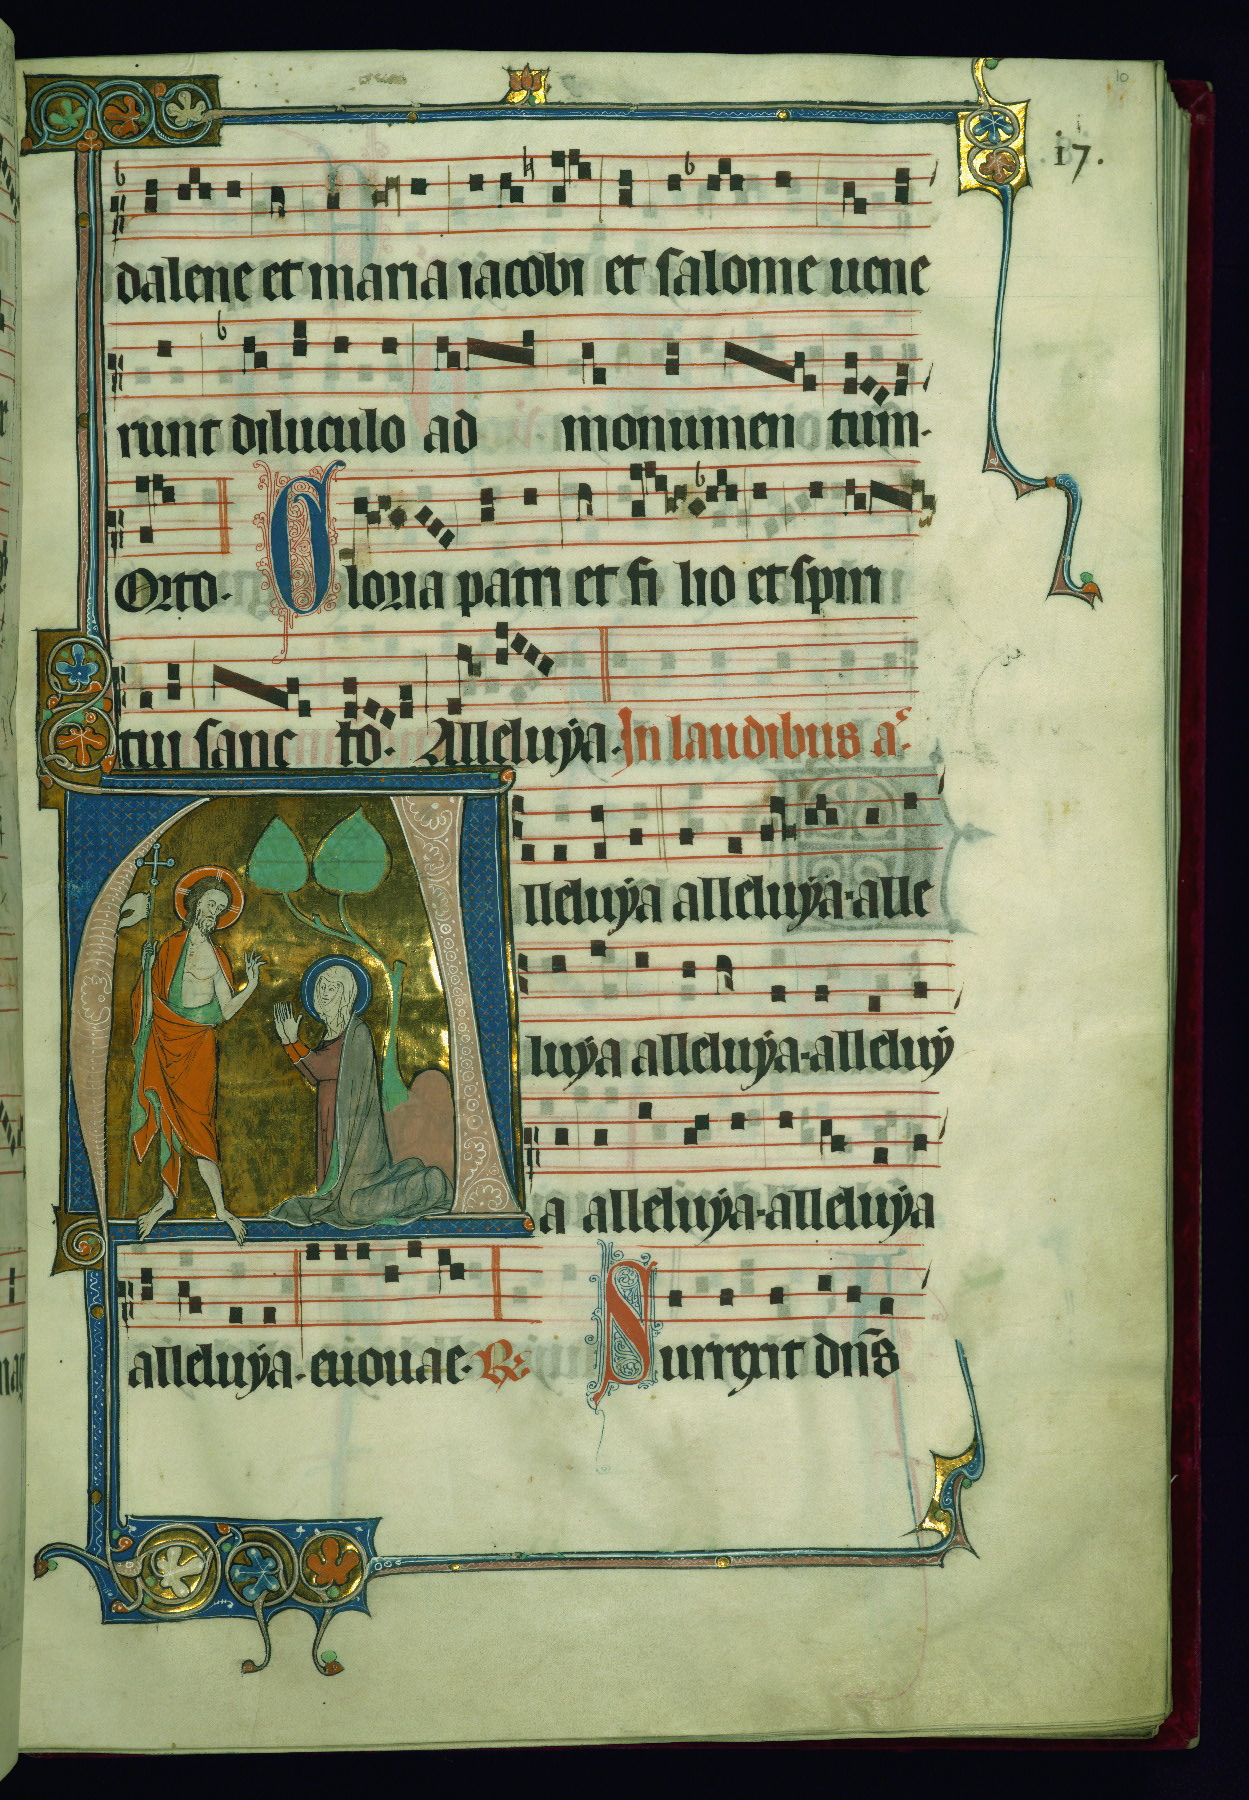 10
17.
dalene et maria iacobi et salome uene
runt diluculo ad monumen tum.
Orto. Gloria patri et fi lio et spiri
tui sanc to. Alleluya. In laudibus a͛.
Alleluya alleluya. alle
luya alleluya. alleluy
a alleluya. alleluya
alleluya. euouae. R̷ Surrexit dn̄s